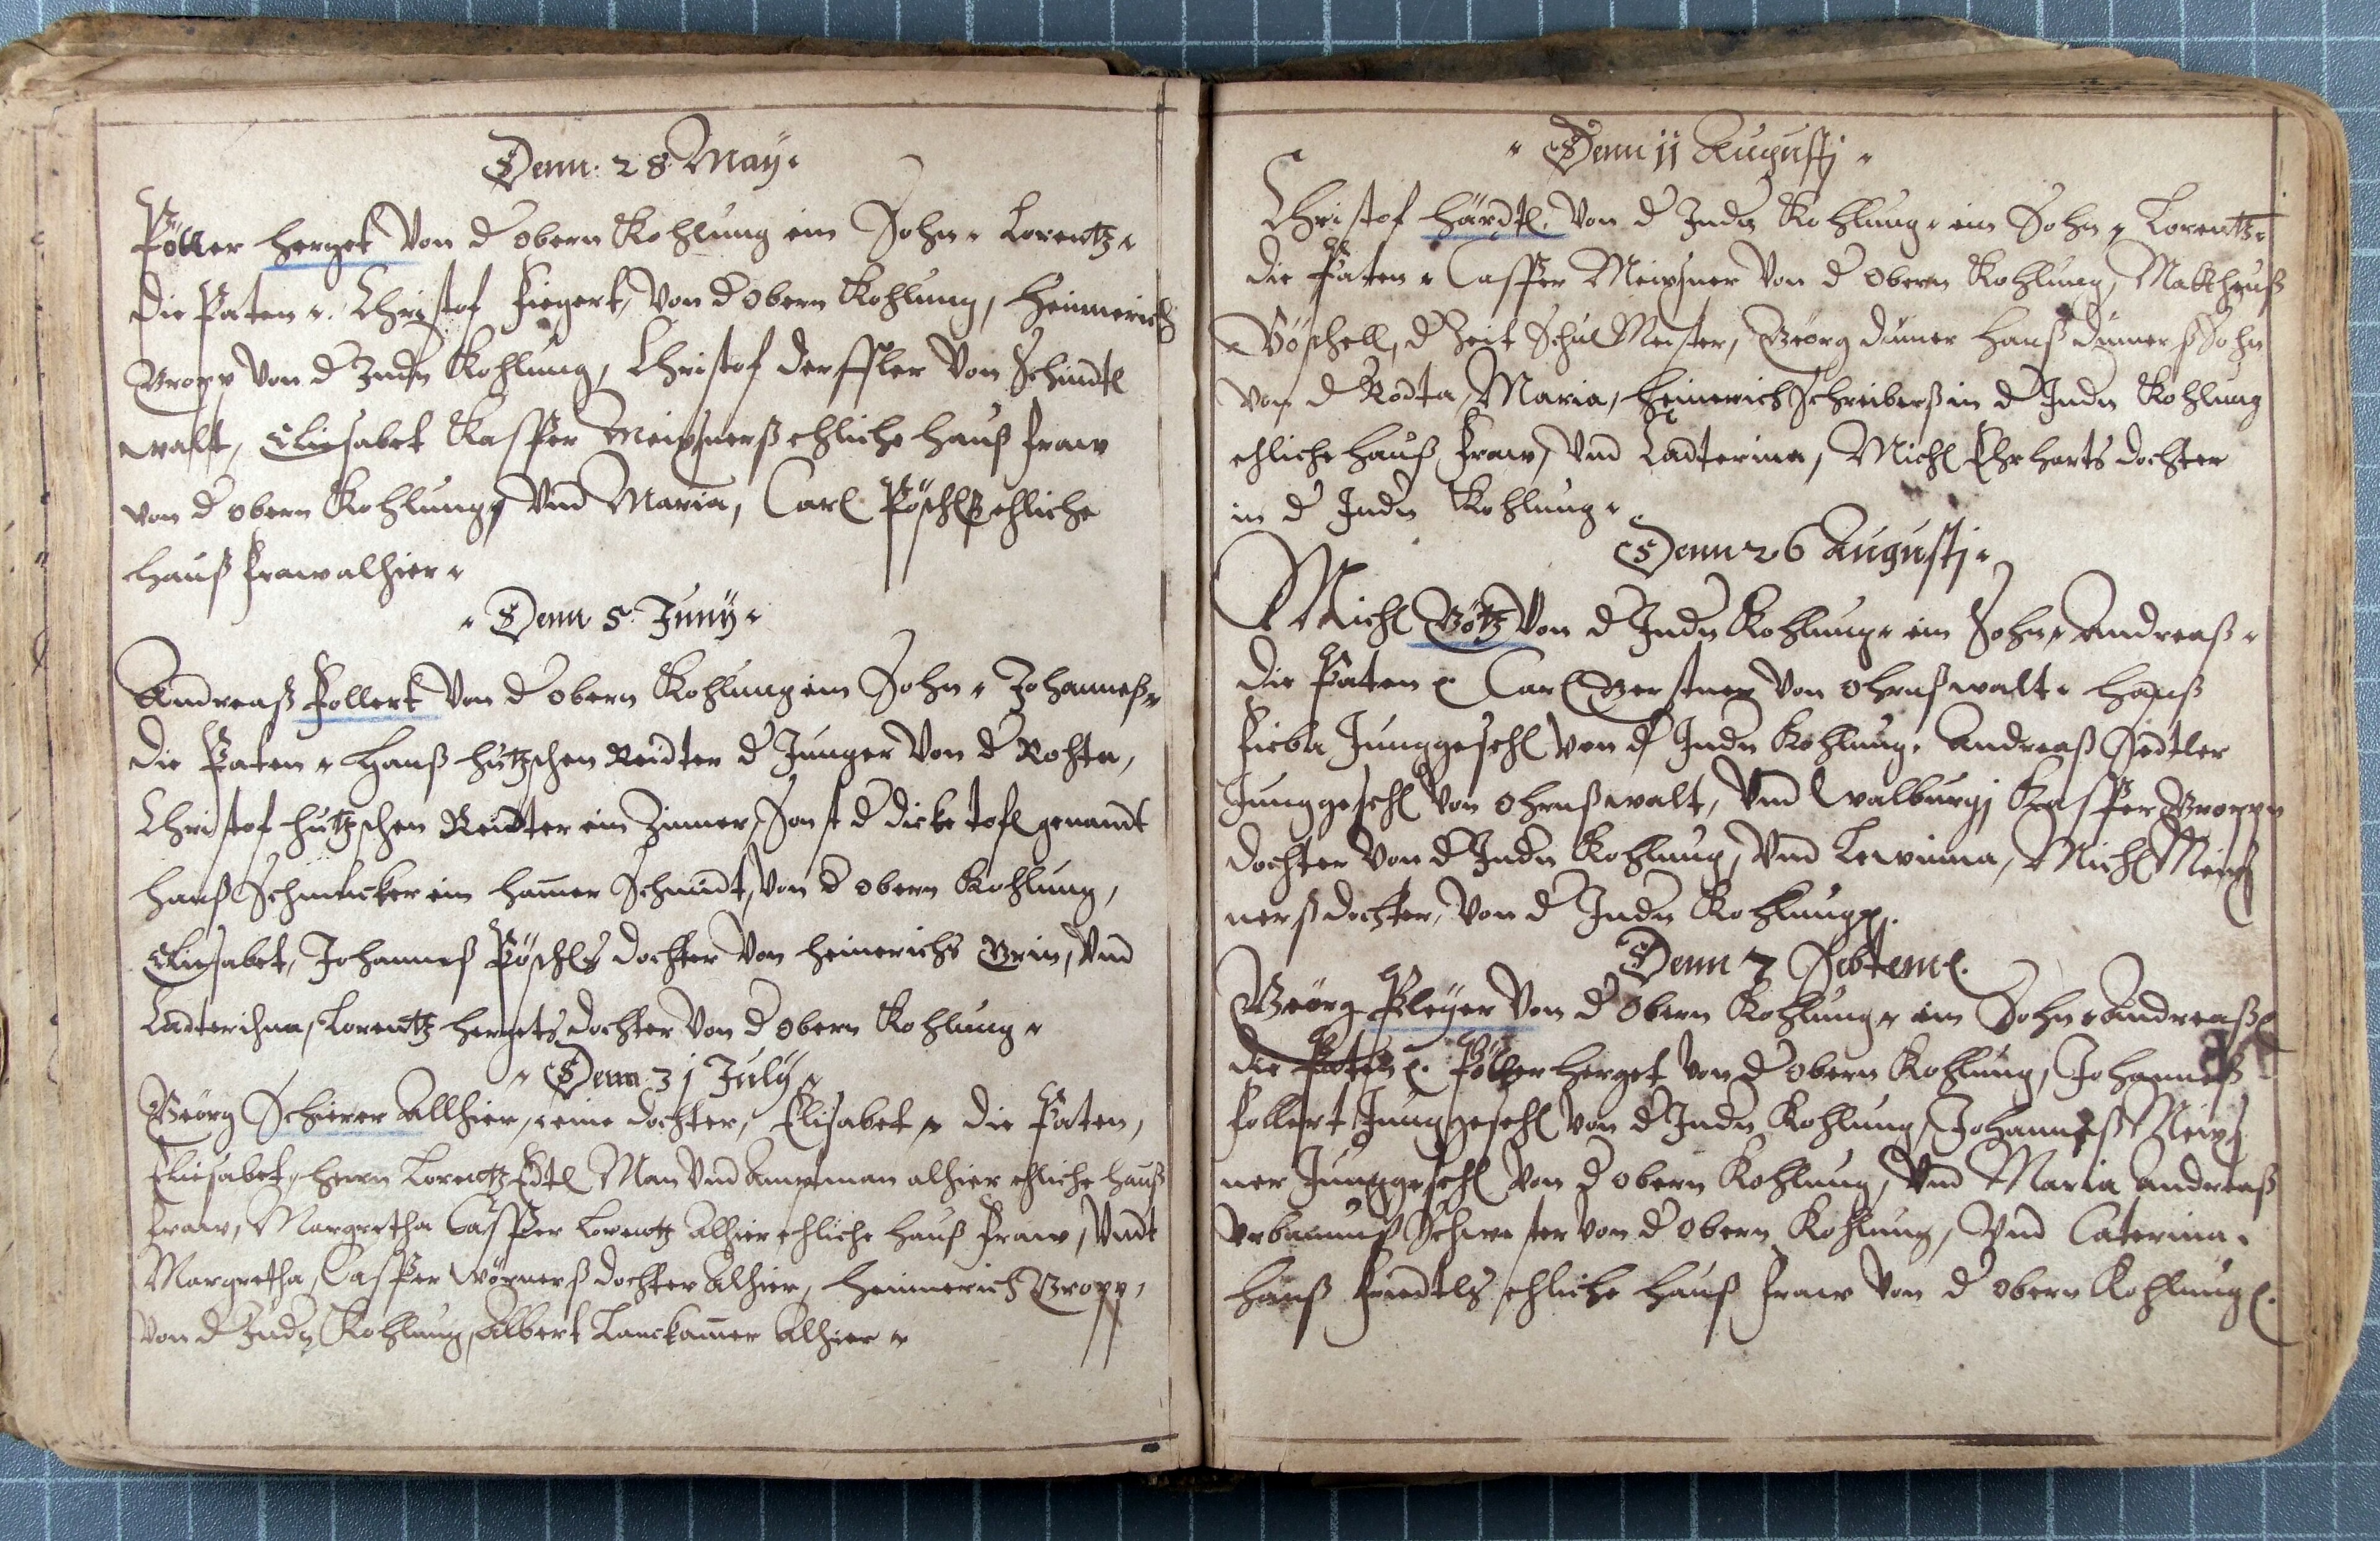 Denn: 28 May.
Föller Herget Von d obern Kohlung ein Sohn. Lorentz.
die Paten. Christof Fiegert, Von d obern Kohlung, Heinnerich
Gropp Von d Indn Kohlung, Christof Dersfler Von Schindl
walt, Eliesabet Kasper Meixnerß ehliche Hauß fraw
von d obern Kohlung, Vnd Maria, Carl Pöschlß ehliche
Hauß fraw alhier.
Denn 5. Juny.
Andreaß Follert Von d obern Kohlung ein Sohn. Johanneß.
die Paten. Hanß Hutzschen Reidter d Junger Von d Rohta,
Christof Hutzschen Reidter ein Zimer, Sonst d dicke tofl genandt
Hanß Schmucker ein Hamer Schmidt, Von d obern Kohlung,
Eliesabet, Johanneß Pöschls dochter Von Heinerichs Grin, Vnd
Cadterihna, Lorentz Hergets dochter Von d obern Kohlung.
Denn 31 July.
Geörg Schierer Allhier, eine dochter, Elisabet. die Paten,
Eliesabet, Herrn Lorentz Edtl Man Vnd Amptman alhier ehliche Hauß
fraw, Margretha Casper Lorentz Alhier ehliche Hauß fraw, Vndt
Margretha, Casper Wörnerß dochter Alhier, Heinnerich Gropp,
Von d Indn Kohlung, Albert Lanckamer Alhier.
Denn 11 Augustj
Christof Härdtl. Von d Indn Kohlung. ein Sohn. Lorentz.
die Paten. Casper Meixner Von d obern Kohlung, Mattheuß
Böschell, d Zeit Schul Meister, Geörg Dumer Hanß Dumerß Sohn
von d Rodta, Maria, Heinerich Schreiberß in d Indn Kohlung
ehliche Hauß fraw, Vnd Cadterina, Michl Ehrharts dochter
in d Indn Kohlung.
Denn 26 Augustj.
Michl Götz Von d Indn Kohlung. ein Sohn. Andreaß.
die Paten. Carl Gerstner Von Ohrnßwalt. Hanß
Fiebla Junggeschl Von d Indn Kohlung. Andreaß Sedtler
Junggeschl Von Ohrnßwalt, Vnd Walburgj Kasper Groppn
dochter Von d Indn Kohlung, Vnd Michl Meix
nerß dochter, Von d Indn Kohlung.
Denn 7 Sebteml.
Geörg Pleyer Von d obern Kohlung. ein Sohn. Andreaß.
die Paten. Föller Herget Von d obern Kohlung, Johanneß
Follert Junggeschl Von d Indn Kohlung, Johanneß Meix
ner Junggeschl Von d obern Kohlung, Vnd Maria Andreaß
Vrbannuß Schwester Von d obern Kohlung, Vnd Caterina.
Hanß friedtls ehliche Hauß fraw Von d obern Kohlung.